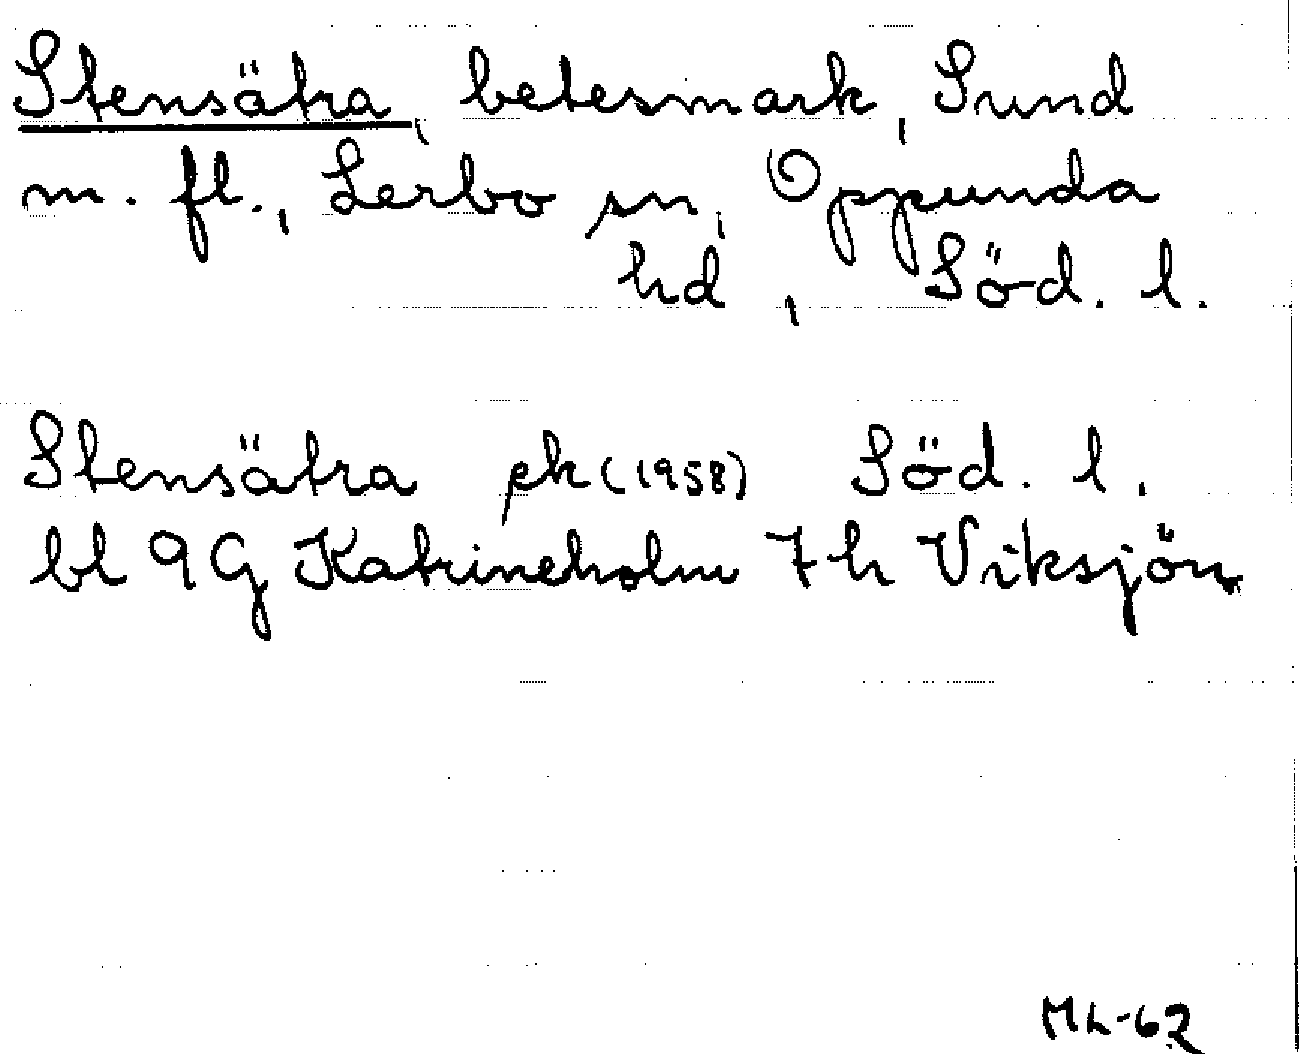 Stensätra, betesmark, Sund
m. fl., Lerbo sn, Oppunda
hd, Söd. l.
Stensätra ek (1958) Söd. l.
bl 9G Katrineholm 7h Viksjön
ML-62